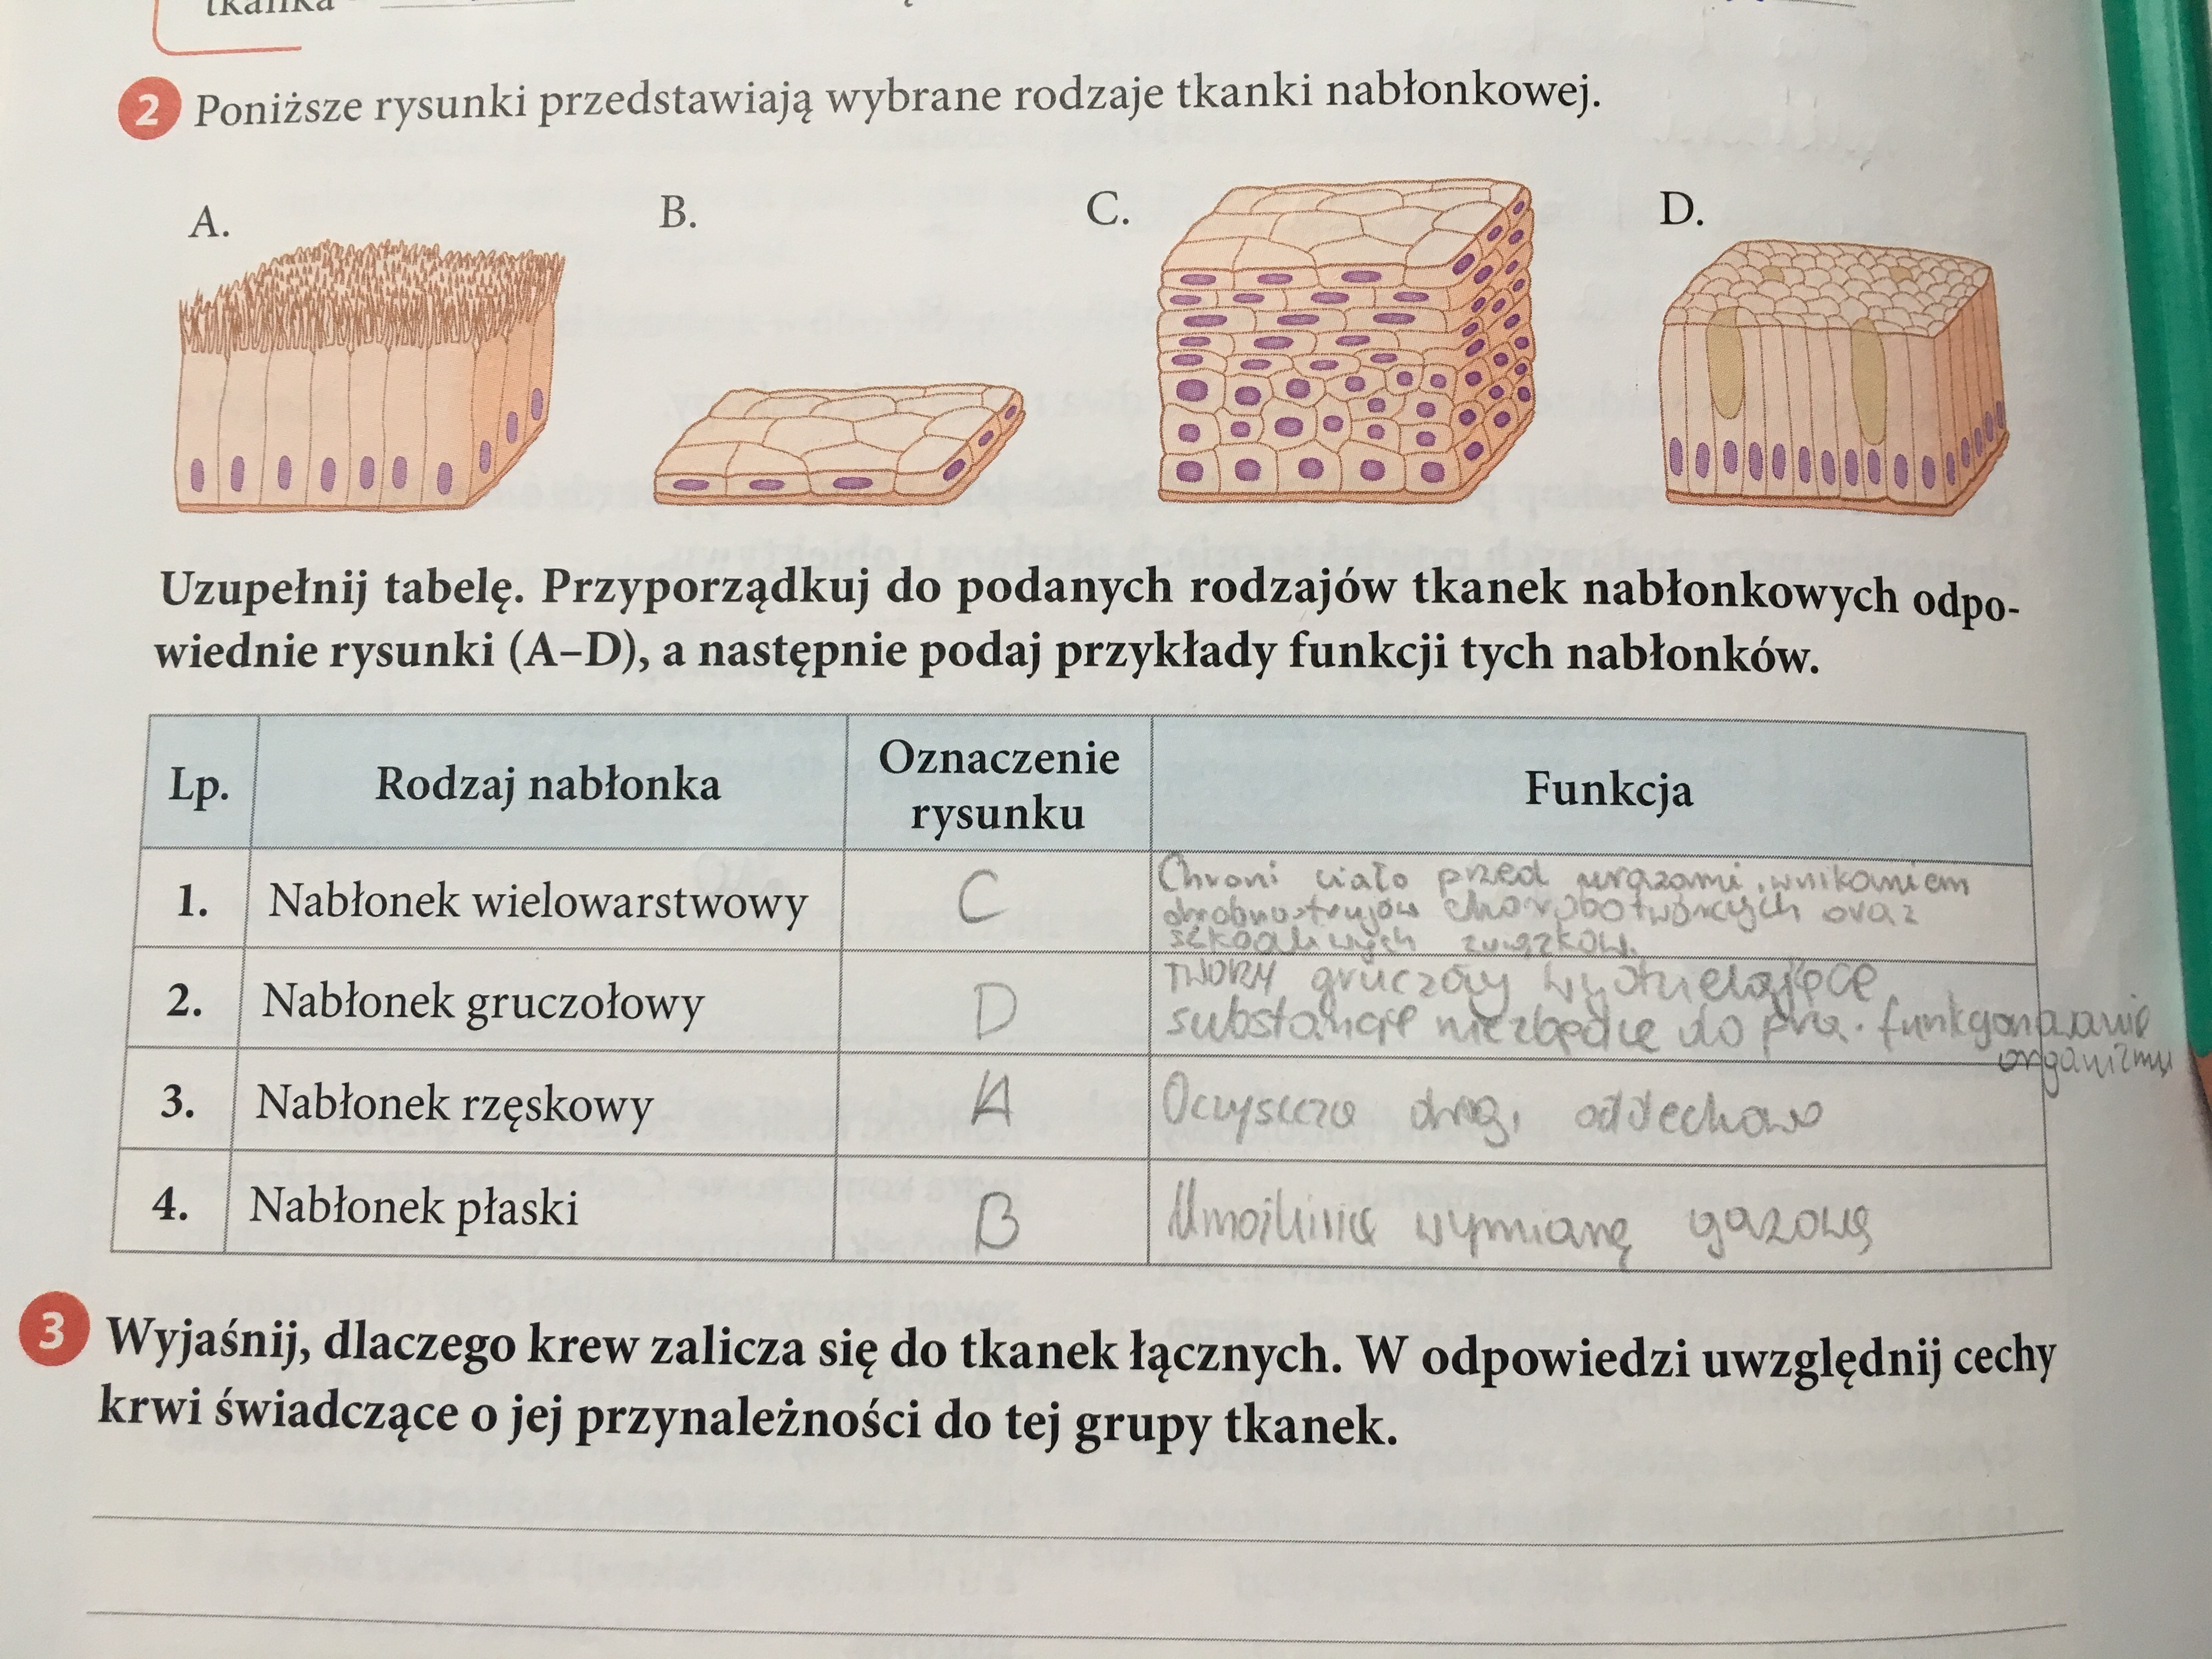 tkanka
2 Poniższe rysunki przedstawiają wybrane rodzaje tkanki nabłonkowej.
A. B. C. D.
Uzupełnij tabelę. Przyporządkuj do podanych rodzajów tkanek nabłonkowych odpo-
wiednie rysunki (A–D), a następnie podaj przykłady funkcji tych nabłonków.
Lp. Rodzaj nabłonka Oznaczenie rysunku Funkcja
1. Nabłonek wielowarstwowy C Chroni ciało przed urazami, wnikaniem
drobnoustrojów chorobotwórczych oraz
szkodliwych związków.
2. Nabłonek gruczołowy D Tworzy gruczoły wydzielające
substancje niezbędne do funkcjonowanie
organizmu
3. Nabłonek rzęskowy A Oczyszcza drogi oddechowe
4. Nabłonek płaski B Umożliwia wymianę gazową
3 Wyjaśnij, dlaczego krew zalicza się do tkanek łącznych. W odpowiedzi uwzględnij cechy
krwi świadczące o jej przynależności do tej grupy tkanek.